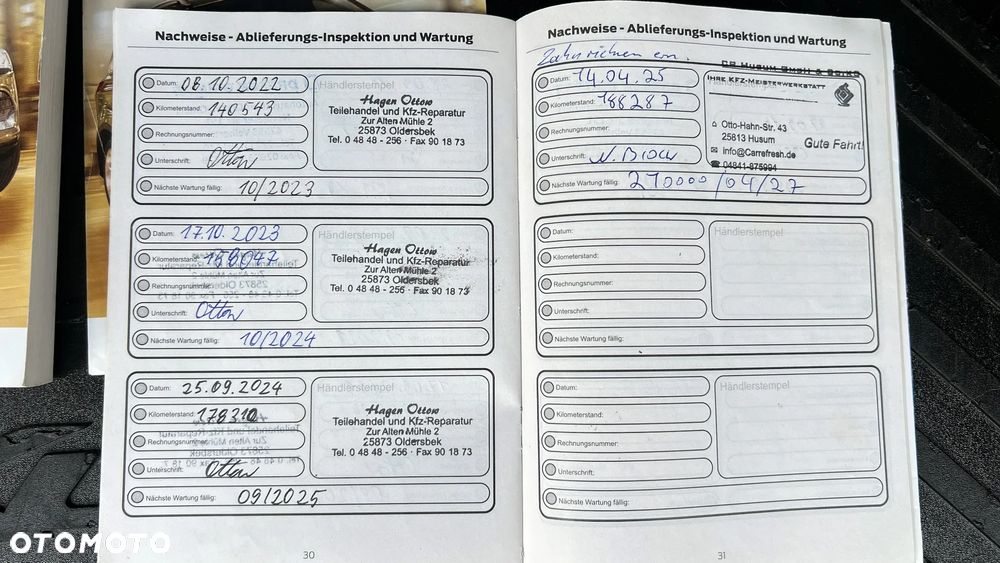 Nachweise - Ablieferungs-Inspektion und Wartung
Datum: 08.10.2022
Kilometerstand: 140543
Rechnungsnummer:
Unterschrift: Otton
Nächste Wartung fällig: 10/2023
Händlerstempel
Hagen Ottow
Teilehandel und Kfz-Reparatur
Zur Alten Mühle 2
25873 Oldersbek
Tel. 0 48 48 - 256 · Fax 90 18 73
Datum: 17.10.2023
Kilometerstand:
Rechnungsnummer:
Unterschrift: Otton
Nächste Wartung fällig: 10/2024
Händlerstempel
Hagen Ottow
Teilehandel und Kfz-Reparatur
Zur Alten Mühle 2
25873 Oldersbek
Tel. 0 48 48 - 256 - Fax 90 18 73
Datum: 25.09.2024
Kilometerstand: 178310
Rechnungsnummer:
Unterschrift: Otton
Nächste Wartung fällig: 09/2025
Händlerstempel
Hagen Ottow
Teilehandel und Kfz-Reparatur
Zur Alten Mühle 2
25873 Oldersbek
Tel. 0 48 48 - 256 · Fax 90 18 73
30
Nachweise - Ablieferungs-Inspektion und Wartung
Zahnriemen ern.
Datum: 14.04.25
Kilometerstand: 188287
Rechnungsnummer:
Unterschrift:
Nächste Wartung fällig: 210000/04/27
Händlerstempel
CR Husum GmbH & Co.KG
IHRE KFZ-MEISTERWERKSTATT
Otto-Hahn-Str. 43
25813 Husum
info@Carrefresh.de
04841-875994
Gute Fahrt!
Datum:
Kilometerstand:
Rechnungsnummer:
Unterschrift:
Nächste Wartung fällig:
Händlerstempel
Datum:
Kilometerstand:
Rechnungsnummer:
Unterschrift:
Nächste Wartung fällig:
Händlerstempel
31
OTOMOTO